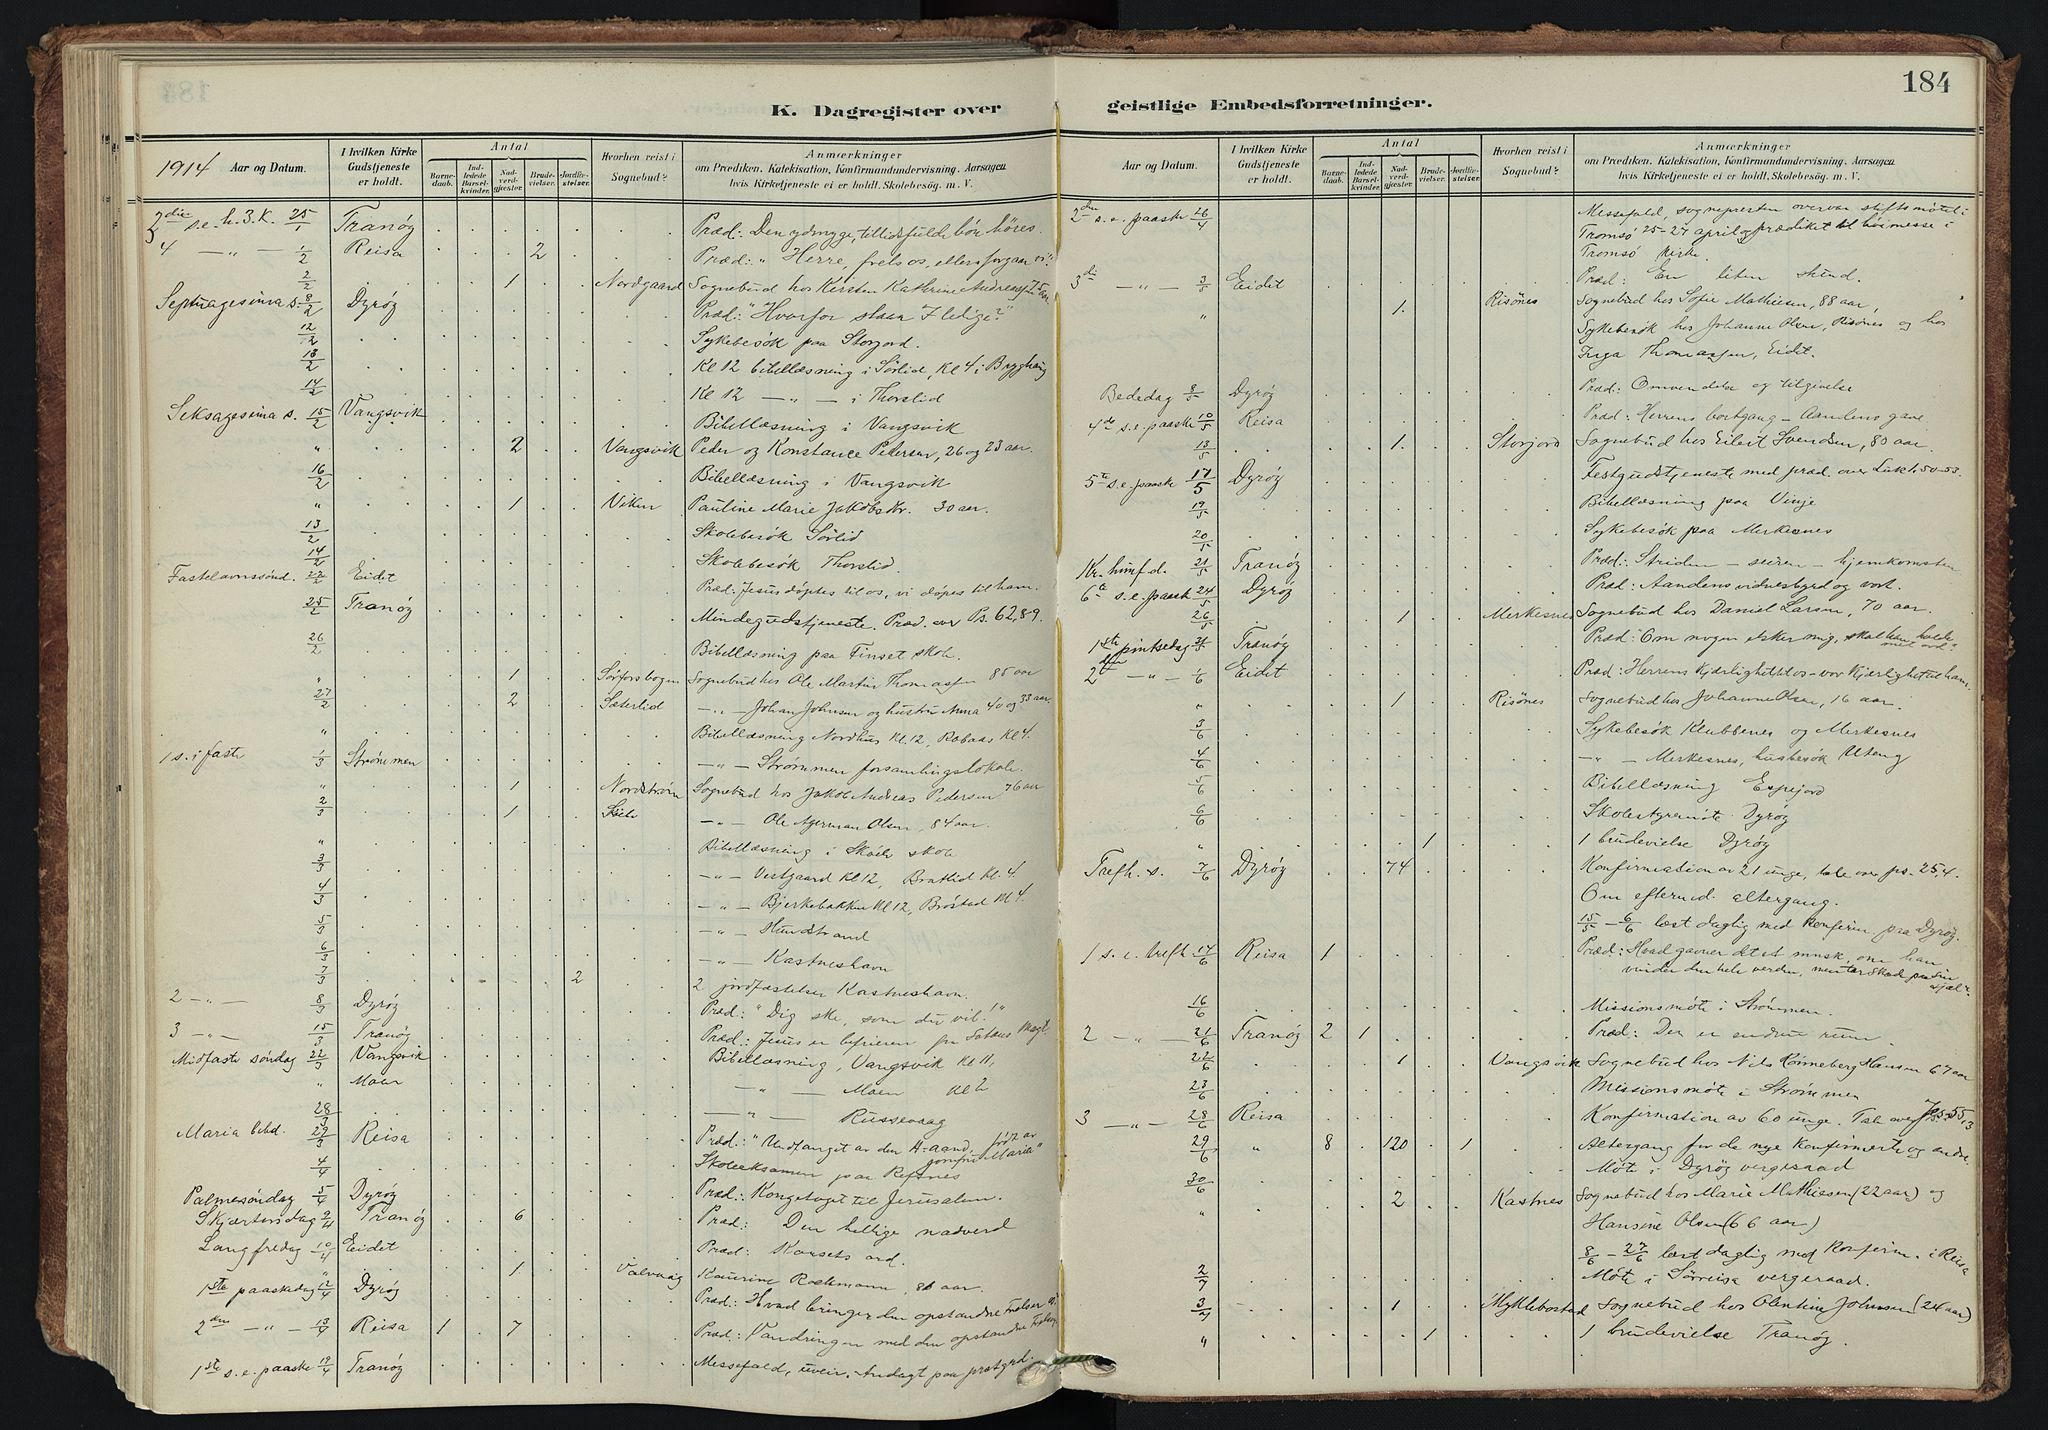 184
K. Dagregister over geistlige Embedsforretninger.
1914 Aar og Datum. I hvilken Kirke Gudstjeneste er holdt. Antal Barnedaab. Indledede Barselkvinder. Nadverdgjester. Brudevielser. Jordfæstelser. Hvorhen reist i Sognebud? Anmærkninger om Prædiken, Katekisation, Konfirmandundervisning, Aarsagen hvis Kirketjeneste ei er holdt, Skolebesøg m. V.
2die s.e.h.3.K. 25/1 Tranøy Præd: Den ydmyge, tillidsfulde bön höres.
4 — " — 1/2 Reisa 2 Præd: "Herre, frels os, ellers forgaar vi."
2/2 1 Nordgaard Sognebud hos Kersten Kathrine Andreassen 75 aar
Septuagesima s. 8/2 Dyrøy Præd: "Hvorfor staar I ledige?"
12/2 Sykebesök paa Storjord.
13/2 Kl 12 bibellæsning i Sörlid, Kl 4 i Brygghaug
14/2 Kl 12 — " — i Thorslid
Seksagesima s. 15/2 Vangsvik Bibellæsning i Vangsvik
" 2 Vangsvik Peder og Konstance Pedersen, 26 og 23 aar.
16/2 Bibellæsning i Vangsvik
" 1 Viken Pauline Marie Jakobsdtr. 30 aar.
13/2 Skolebesök Sörlid
14/2 Skolebesök Thorslid.
Fastelavnssönd. 22/2 Eidet Præd: Jesus döptes til os, vi döpes til ham.
25/2 Tranøy Mindegudstjeneste. Præd. over Ps. 62,8-9.
26/2 Bibellæsning paa Finset skole.
" 1 Sørforsbogen Sognebud hos Ole Martin Thomassen 85 aar
27/2 2 Sæterlid — " — Johan Johnsen og hustru Anna 40 og 33 aar.
" Bibellæsning Nordhus Kl.12, Robaas Kl 4.
1 s. i faste 1/3 Strømmen — " — Strømmen forsamlingslokale.
" 1 Nordstrøm Sognebud hos Jakob Andreas Pedersen 76 aar
2/3 1 — " — Ole Agerman Olsen, 84 aar.
" Bibellæsning i skole
3/3 — " — Vestgaard Kl 12, Brattlid Kl. 4.
4/3 — " — Bjerkebakken Kl 12, Brøstad Kl 4.
5/3 — " — Hundstrand
6/3 — " — Kastneshavn
7/3 2 2 jordfæstelser Kastneshavn.
2 — " — 8/3 Dyrøy Præd: "Dig ske, som du vil!"
3 — " — 15/3 Tranøy Præd: Jesus er befrieren fra Satans Magt.
Midfaste søndag 22/3 Vangsvik Bibellæsning, Vangsvik Kl 11,
" Moen — " — Moen Kl 2
28/3 — " — Russevaag
Maria bebd. 29/3 Reisa Præd: "Undfanget av den H-aand, født av jomfru Maria"
4/4 Skoleeksamen paa Refsnes
Palmesöndag 5/4 Dyrøy Præd: Kongetoget til Jerusalem.
Skjærtorsdag 9/4 Tranøy 6 Præd: Den hellige nadverd
Langfredag 10/4 Eidet Præd: Korsets ord.
" 1 Valvaag Kaurine Rochmann, 86 aar.
1ste paaskedag 12/4 Dyrøy Præd: Hvad bringer den opstandne Frelser os
2den — " — 13/4 Reisa 1 7 Præd: Vandringen med den opstandne Frelser
1ste s.e. paaske 19/4 Tranøy Messefald, uveir. Andagt paa prestgrd.
Aar og Datum. I hvilken Kirke Gudstjeneste er holdt. Antal Barnedaab. Indledede Barselkvinder. Nadverdgjester. Brudevielser. Jordfæstelser. Hvorhen reist i Sognebud? Anmærkninger om Prædiken, Katekisation, Konfirmandundervisning, Aarsagen hvis Kirketjeneste ei er holdt, Skolebesøg m. V.
2den s.e. paaske 26/4 Messefald, sognepresten overvar stiftsmötet i
Tromsö 25-27 april og prædiket til höimesse i
Tromsö Kirke.
3die — " — 3/5 Eidet Præd: En liten stund.
" 1. Risönes Sognebud hos Sofie Mathisen, 88 aar,
Sykebesök hos Johanne Olsen, Risönes og hos
Inga Thomassen, Eidet.
Bededag 8/5 Dyrøy Præd: Omvendelse og tilgivelse
4de s.e. paaske 10/5 Reisa Præd: Herrens bortgang – Aandens gave
13/5 1. Storjord Sognebud hos Eilert Svendsen, 80 aar.
5te s.e. paaske 17/5 Dyrøy Festgudstjeneste med præd. over Luk 1. 50-53.
19/5 Bibellæsning paa Vinje
20/5 Sykebesök paa Merkesnes
Kr. himf.d. 21/5 Tranøy Præd: Striden – seiren – hjemkomsten
6te s.e. paaske 24/5 Dyrøy Præd: Aandens vidnesbyrd og vort.
26/5 1 Merkesnes Sognebud hos Daniel Larsen, 70 aar.
1ste pintsedag 31/5 Tranøy Præd: "Om nogen elsker mig, skal han holde mit ord."
2den — " — 1/6 Eidet Præd: Herrens Kjærlighet til os – vor Kjærlighet til ham.
" 1 Risönes Sognebud hos Johanne Olsen, 16 aar.
3/6 Sykebesök Klubbenes og Merkesnes
4/6 — " — Merkesnes, husbesök Uteng
5/6 Bibellæsning Espejord
6/6 Skolestyremöte Dyrøy
" 1 1 brudevielse Dyrøy
Trefh. s. 7/6 Dyrøy 74 Konfirmation av 21 unge, tale over ps. 25,4.
Om efterm.d. altergang.
15/5 – 6/6 læst daglig med Konfirm. paa Dyrøy.
1 s.e. trefh. 14/6 Reisa 1 Præd: Hvad gavner det et mnsk, om han
vinder den hele verden, men tar skade paa sin sjæl".
16/6 Missionsmöte i Strömmen.
2 — " — 21/6 Tranøy 2 1 Præd: Der er endnu rum.
22/6 1 Vangsvik Sognebud hos Nils Könneberg Hansen 67 aar
23/6 Missionsmöte i Strömmen
3 — " — 28/6 Reisa Konfirmation av 60 unge. Tale over Jes. 55,13
29/6 " 8 120 1 Altergang for de nye konfirmerte og andre.
30/6 Möte i Dyrøy vergeraad
" 2 Kastnes Sognebud hos Marie Mathiesen (22 aar) og
Hansine Olsen (66 aar)
8/6 – 27/6 læst daglig med Konfirm. i Reisa
2/7 Möte i Sørreisa vergeraad.
3/7 1 Myklebostad Sognebud hos Olentine Johnsen (24 aar)
" 1 1 brudevielse Tranøy.